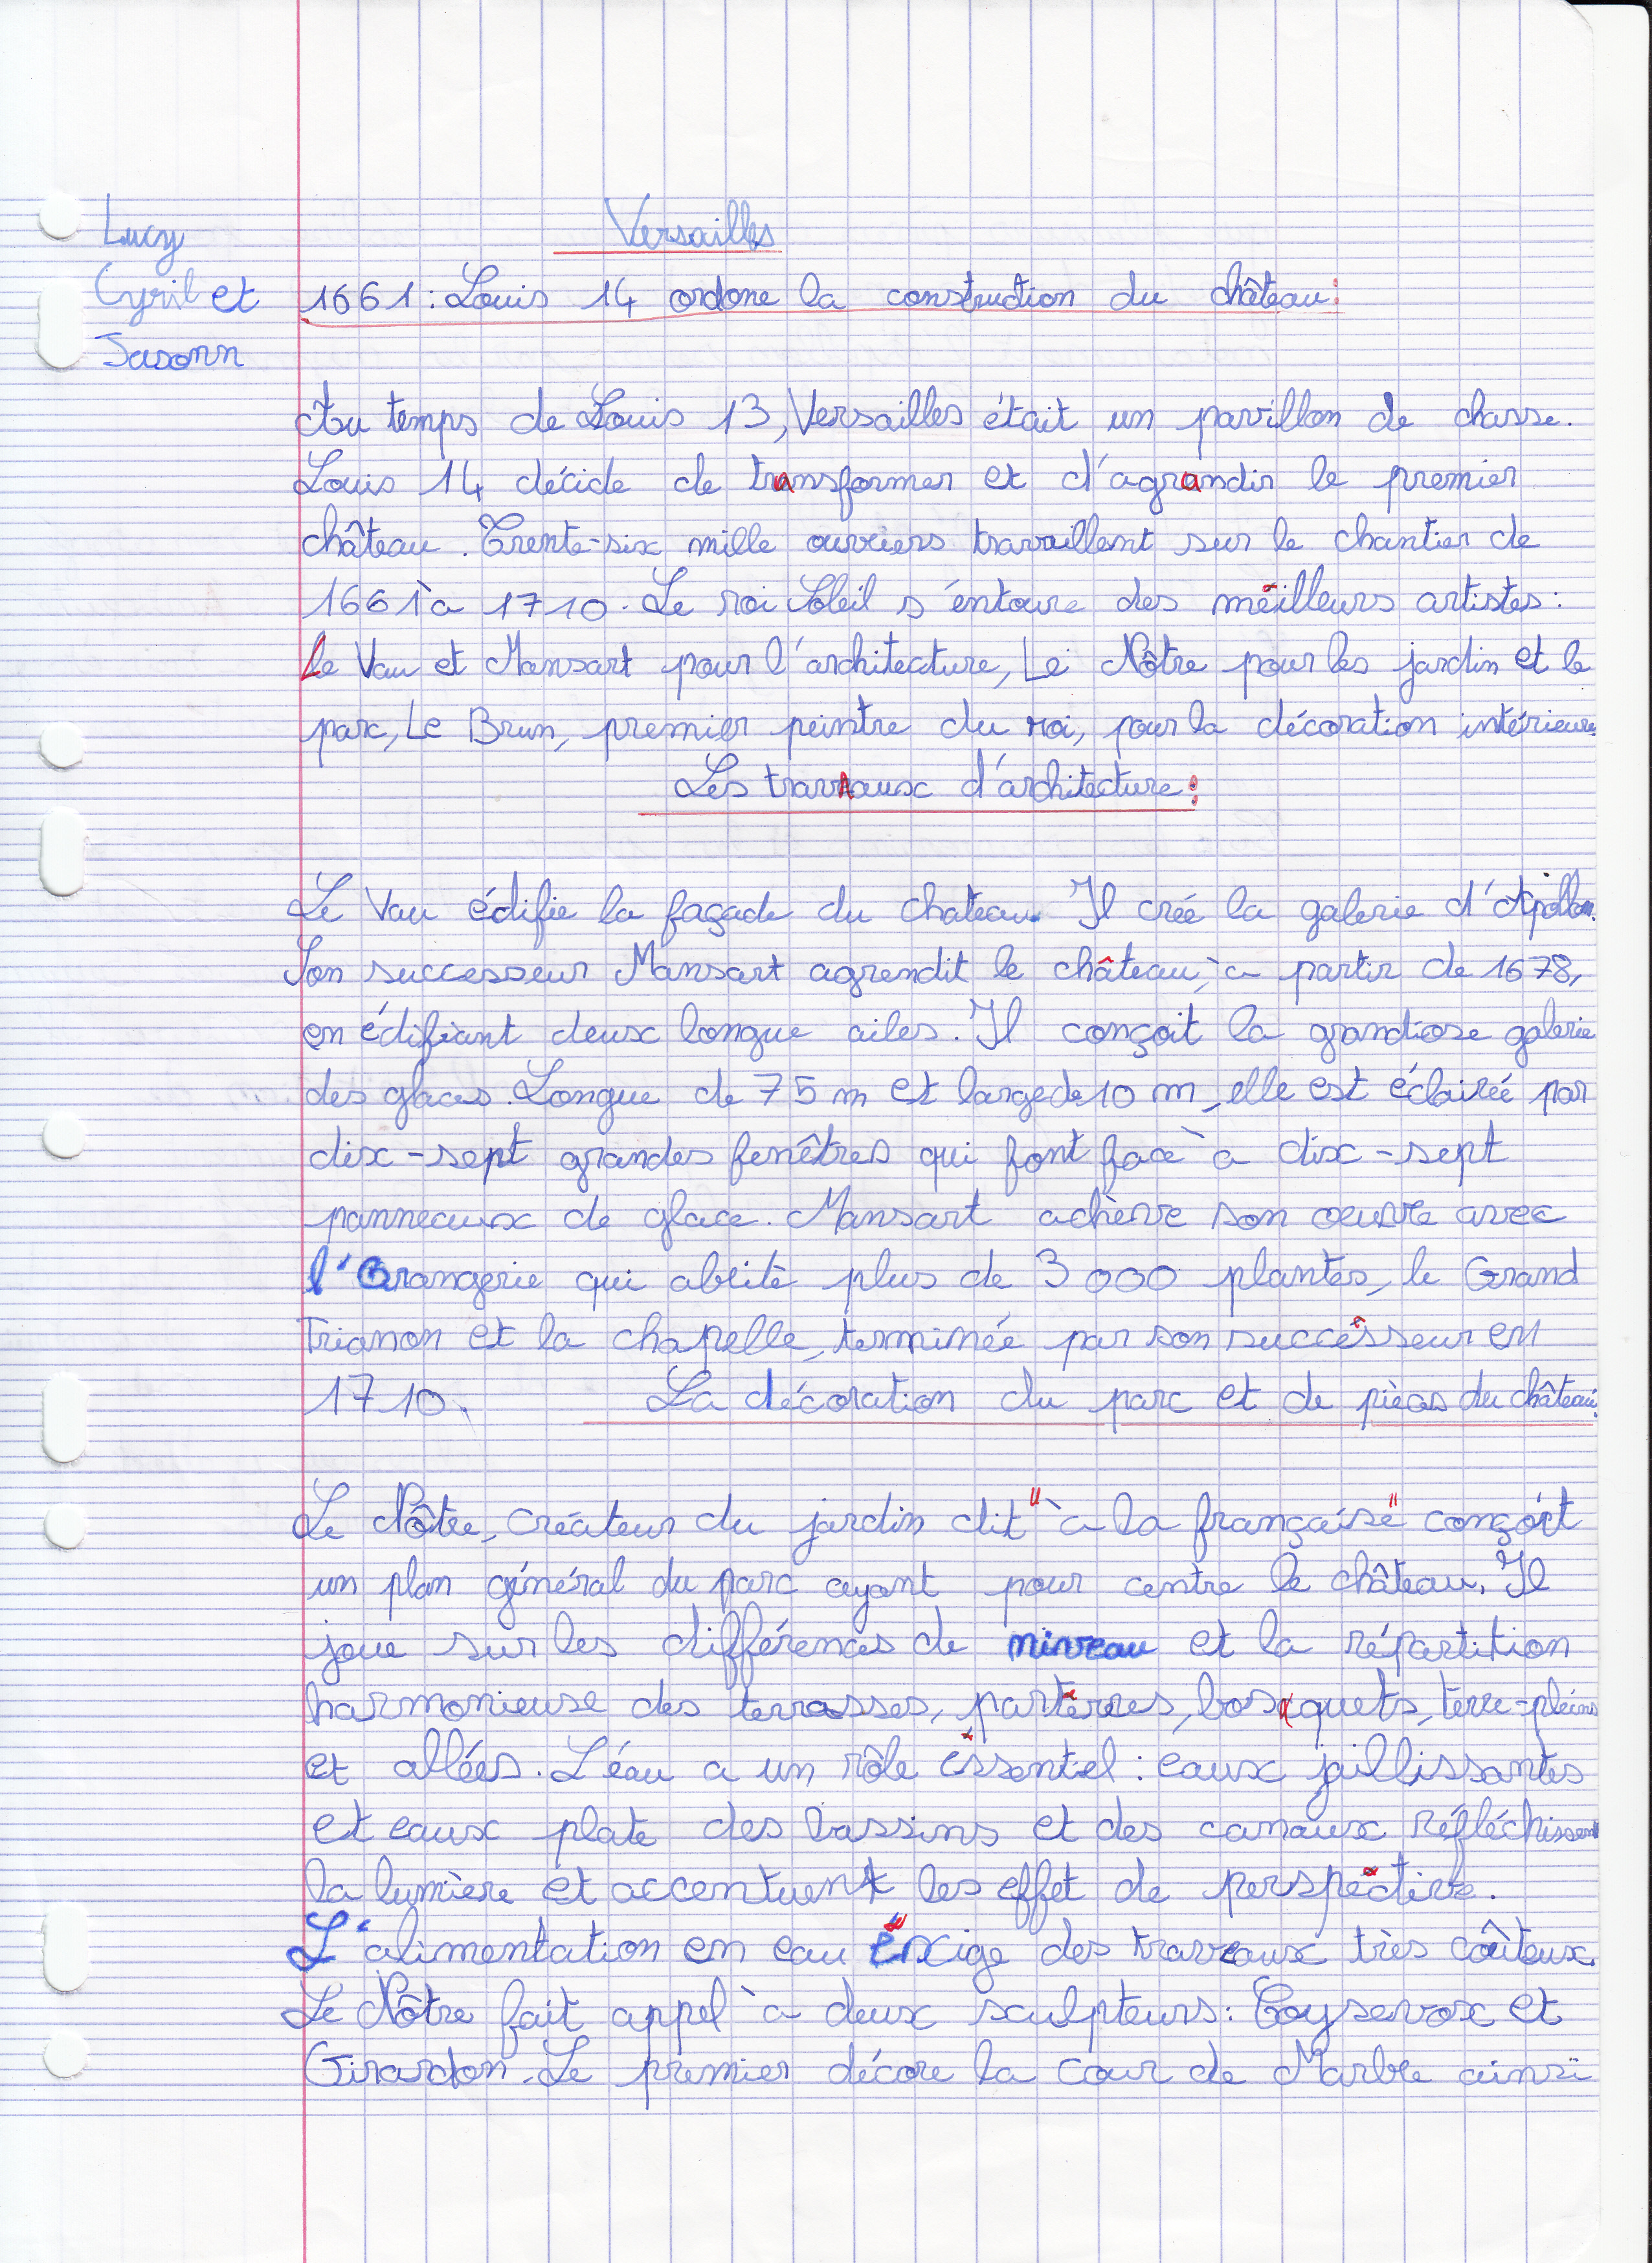 Lucy
Cyril et
Jasonn
Versailles
1661 : Louis 14 ordone la construction du château :
Au temps de Louis 13, Versailles était un pavillon de chasse.
Louis 14 décide de transformer et d'agrandir le premier
château. Trente-six mille ouvriers travaillent sur le chantier de
1661 à 1710. Le roi Soleil s'entoure des meilleurs artistes :
Le Vau et Mansart pour l'architecture, Le Nôtre pour les jardin et le
parc, Le Brun, premier peintre du roi, pour la décoration intérieure.
Les travaux d'architecture :
Le Vau édifie la façade du chateau. Il créé la galerie d'Apollon.
Son successeur Mansart agrendit le château, à partir de 1678,
en édifiant deux longue ailes. Il conçoit la grandiose galerie
des glaces. Longue de 75 m et large de 10 m, elle est éclairée par
dix-sept grandes fenêtres qui font face à dix-sept
panneaux de glace. Mansart achève son oeuvre avec
l'Orangerie qui abrite plus de 3 000 plantes, le Grand
Trianon et la chapelle, terminée par son successeur en
1710.
La décoration du parc et de pièces du château :
Le Nôtre, créateur du jardin dit "à la française" conçoit
un plan général du parc ayant pour centre le château. Il
joue sur les différences de niveau et la répartition
harmonieuse des terrasses, parterres, bosquets, terre-pleins
et allées. L'éau a un rôle essentiel : eaux jaillissantes
et eaux plate des bassins et des canaux réfléchissent
la lumière et accentuent les effet de perspective.
L'alimentation en eau exige des traveaux très coûteux.
Le Nôtre fait appel à deux sculpteurs : Coysevox et
Girardon. Le premier décore la cour de Marbre ainsi